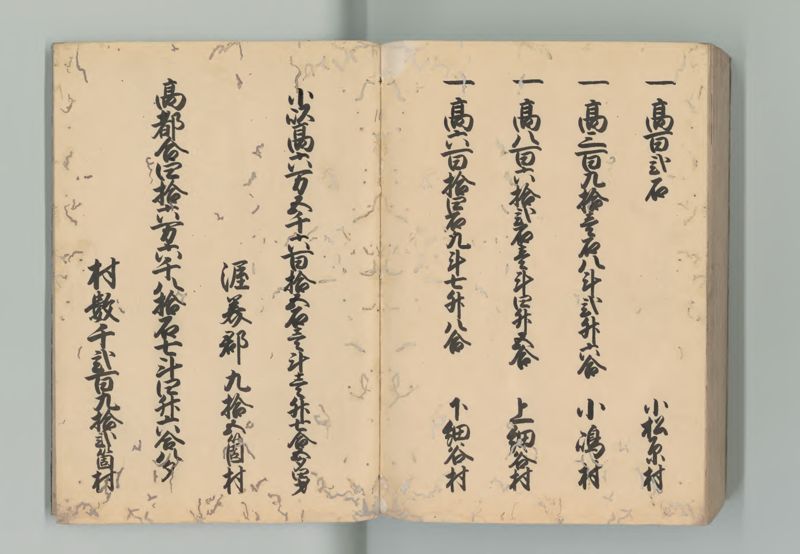 一高百弐石 小松原村
一高三百九拾壱石八斗弐升六合 小嶋村
一高八百六拾弐石壱斗四升五合 上細谷村
一高六百拾四石九斗七升八合 下細谷村
小以高六万五千六百拾五石壱斗壱升七合
渥美郡九拾五箇村
高都合四拾六万六千八拾石七斗四升六合八夕
村数千弐百九拾弐箇村